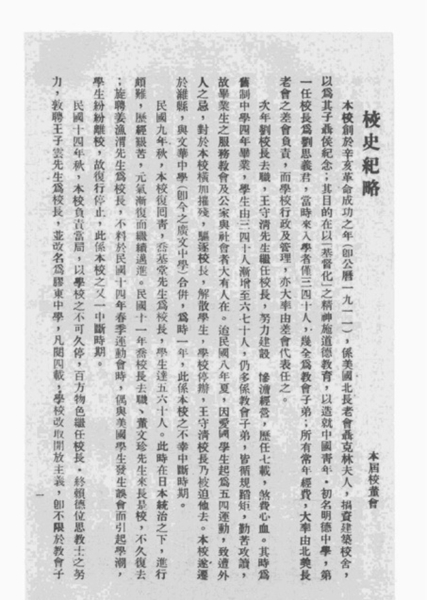 校史紀略
本屆校董會
本校創於辛亥革命成功之年(卽公曆一九一一),係美國北長老會聶克林夫人,捐資建築校舍,
以爲其子聶侯紀念;其目的在以「基督化」之精神施道德教育,以造就中國靑年。初名明德中學,第
一任校長爲劉思義君,當時來入學者僅三四十人,幾全爲教會子弟;所有常年經費,大率由北美長
老會之差會負責,而學校行政及管理,亦大率由差會代表任之。
次年劉校長去職,王守清先生繼任校長,努力建設,慘澹經營,歷任七載,煞費心血。其時爲
舊制中學四年畢業,學生由三四十人漸增至六七十人,仍多係教會子弟,皆循規蹈矩,勤苦攻讀,
故畢業生之服務教會及公家與社會者大有人在。迨民國八年夏,因愛國學生起爲五四運動,致遭外
人之忌,對於本校橫加摧殘,驅逐校長,解散學生,學校停辦,王守清校長乃被迫他去。本校遂遷
於濰縣,與文華中學(卽今之廣文中學)合併,爲時一年,此係本校之不幸中斷時期。
民國九年秋,本校復囘靑,喬基堂先生爲校長,學生達五六十人。此時在日本統治之下,進行
頗難,歷經艱苦,元氣漸復而繼續邁進。民國十一年喬校長去職、董文珍先生來長是校,不久復去
;旋聘姜漁渭先生爲校長,不料於民國十四年春季運動會時,偶與美國學生發生誤會而引起學潮,
學生紛紛離校,故復行停止,此係本校之又一中斷時期。
民國十四年秋,本校負責當局,以學校之不可久停,百方物色繼任校長,終賴德位思教士之努
力,敦聘王子雲先生爲校長,並改名爲膠東中學,凡閱四載、學校改取開放主義,卽不限於教會子
一